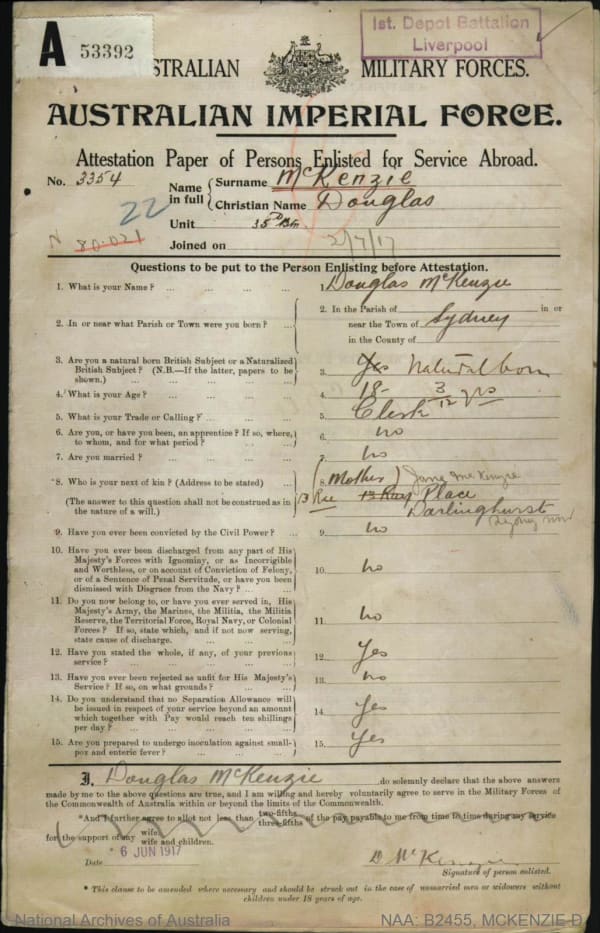 A 53392
1st. Depot Battalion
Liverpool
STRALIAN MILITARY FORCES.
AUSTRALIAN IMPERIAL FORCE.
Attestation Paper of Persons Enlisted for Service Abroad.
No. 3354
Name in full { Surname McKenzie
Christian Name Douglas
22
Unit 35th Bn
N 80.021
Joined on 2/7/17
Questions to be put to the Person Enlisting before Attestation.
1. What is your Name ? ... ... ... ... 1. Douglas McKenzie
2. In or near what Parish or Town were you born ? ... 2. In the Parish of in or
near the Town of Sydney
in the County of
3. Are you a natural born British Subject or a Naturalized
British Subject ? (N.B.—If the latter, papers to be
shown.) ... ... ... ... 3. Yes Natural born
4. What is your Age ? ... ... ... ... 4. 18 - 3/12 yrs
5. What is your Trade or Calling ? ... ... ... 5. Clerk
6. Are you, or have you been, an apprentice ? If so, where,
to whom, and for what period ? ... ... 6. no
7. Are you married ? ... ... ... ... 7. no
8. Who is your next of kin ? (Address to be stated) ... 8. (Mother) Jane McKenzie
(The answer to this question shall not be construed as in
the nature of a will.)
13 Place
Darlinghurst
Sydney NSW
9. Have you ever been convicted by the Civil Power ? ... 9. no
10. Have you ever been discharged from any part of His
Majesty's Forces with Ignominy, or as Incorrigible
and Worthless, or on account of Conviction of Felony,
or of a Sentence of Penal Servitude, or have you been
dismissed with Disgrace from the Navy ? ... ... 10. no
11. Do you now belong to, or have you ever served in, His
Majesty's Army, the Marines, the Militia, the Militia
Reserve, the Territorial Force, Royal Navy, or Colonial
Forces ? If so, state which, and if not now serving,
state cause of discharge. ... ... ... 11. no
12. Have you stated the whole, if any, of your previous
service ? ... ... ... ... 12. Yes
13. Have you ever been rejected as unfit for His Majesty's
Service ? If so, on what grounds ? ... ... 13. no
14. Do you understand that no Separation Allowance will
be issued in respect of your service beyond an amount
which together with Pay would reach ten shillings
per day ? ... ... ... ... 14. Yes
15. Are you prepared to undergo inoculation against small-
pox and enteric fever ? ... ... ... 15. Yes
I, Douglas McKenzie do solemnly declare that the above answers
made by me to the above questions are true, and I am willing and hereby voluntarily agree to serve in the Military Forces of
the Commonwealth of Australia within or beyond the limits of the Commonwealth.
*And I further agree to allot not less than two-fifths three-fifths of the pay payable to me from time to time during my service
for the support of my wife. wife and children.
Date 6 JUN 1917
D McKenzie
Signature of person enlisted.
* This clause to be amended where necessary and should be struck out in the case of unmarried men or widowers without
children under 18 years of age.
National Archives of Australia NAA: B2455, MCKENZIE D